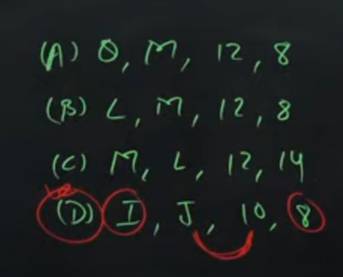 (A) O, M, 12, 8
(B) L, M, 12, 8
(C) M, L, 12, 14
(D) I, J, 10, 8